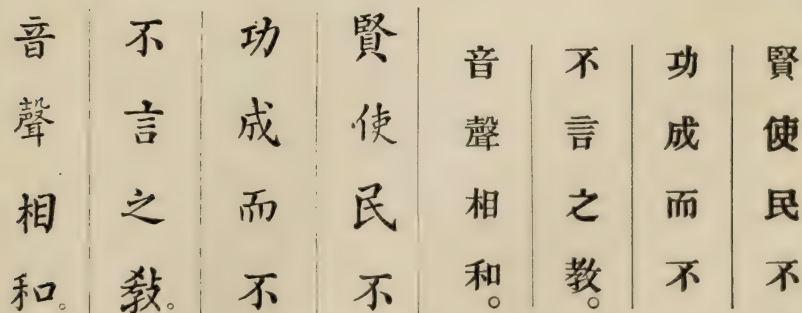 賢使民不
功成而不
不言之教。
音聲相和。
賢使民不
功成而不
不言之教。
音聲相和。